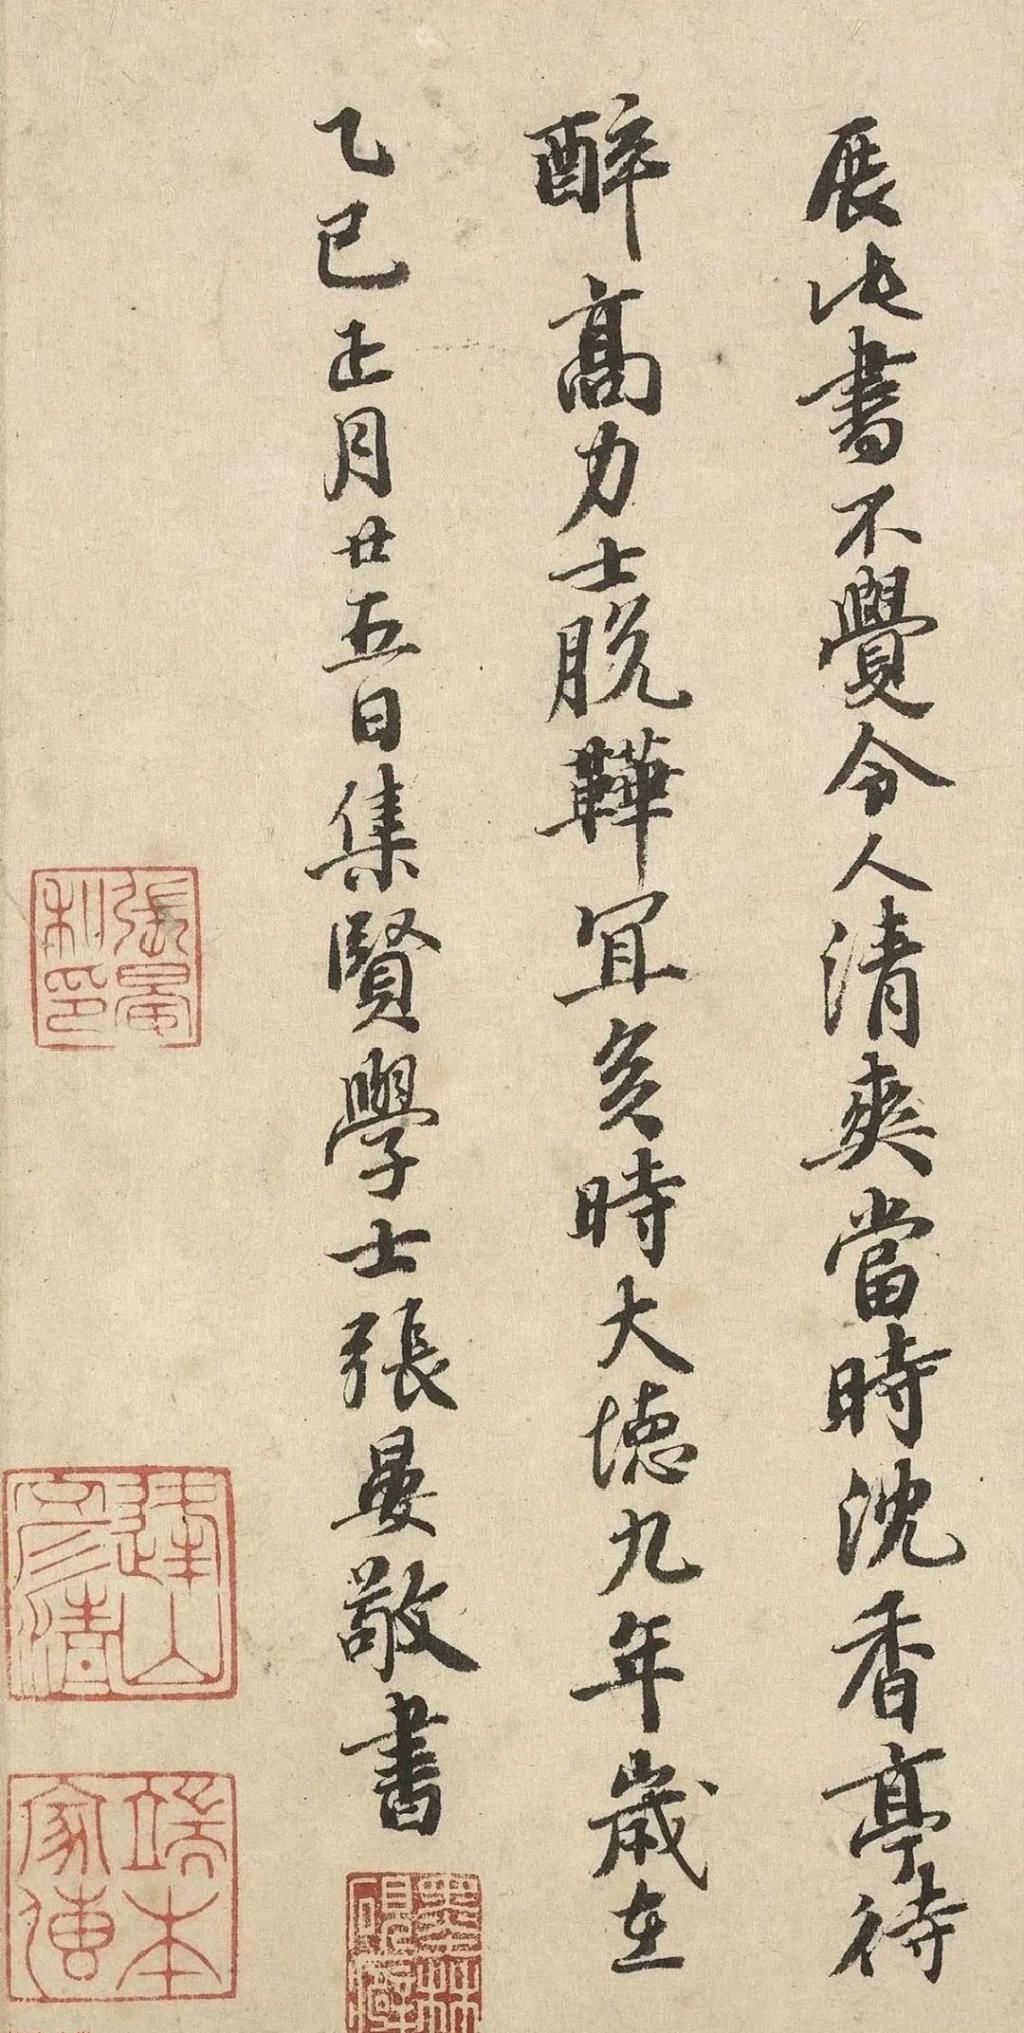 展此書不覺令人清爽當時沈香亭待
醉高力士脫鞾冝亥時大德九年歲在
乙巳正月廿五日集賢學士張晏敬書
張晏
私印
端本
家傳